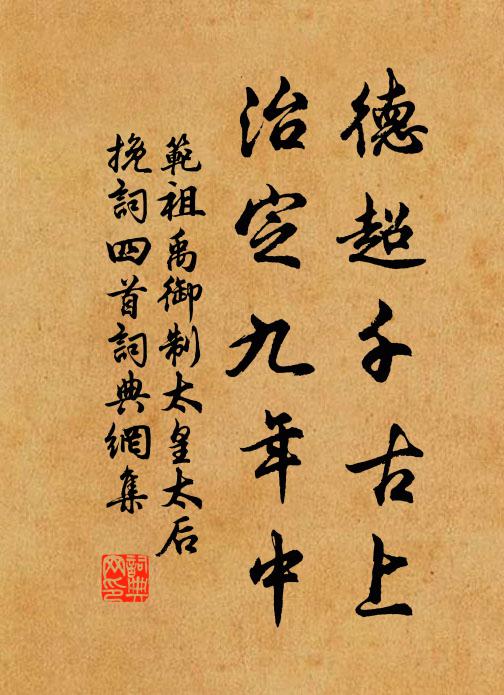 德超千古上
治定九年中
範祖禹御制太皇太后
挽詞四首詞典網集
詞典网印